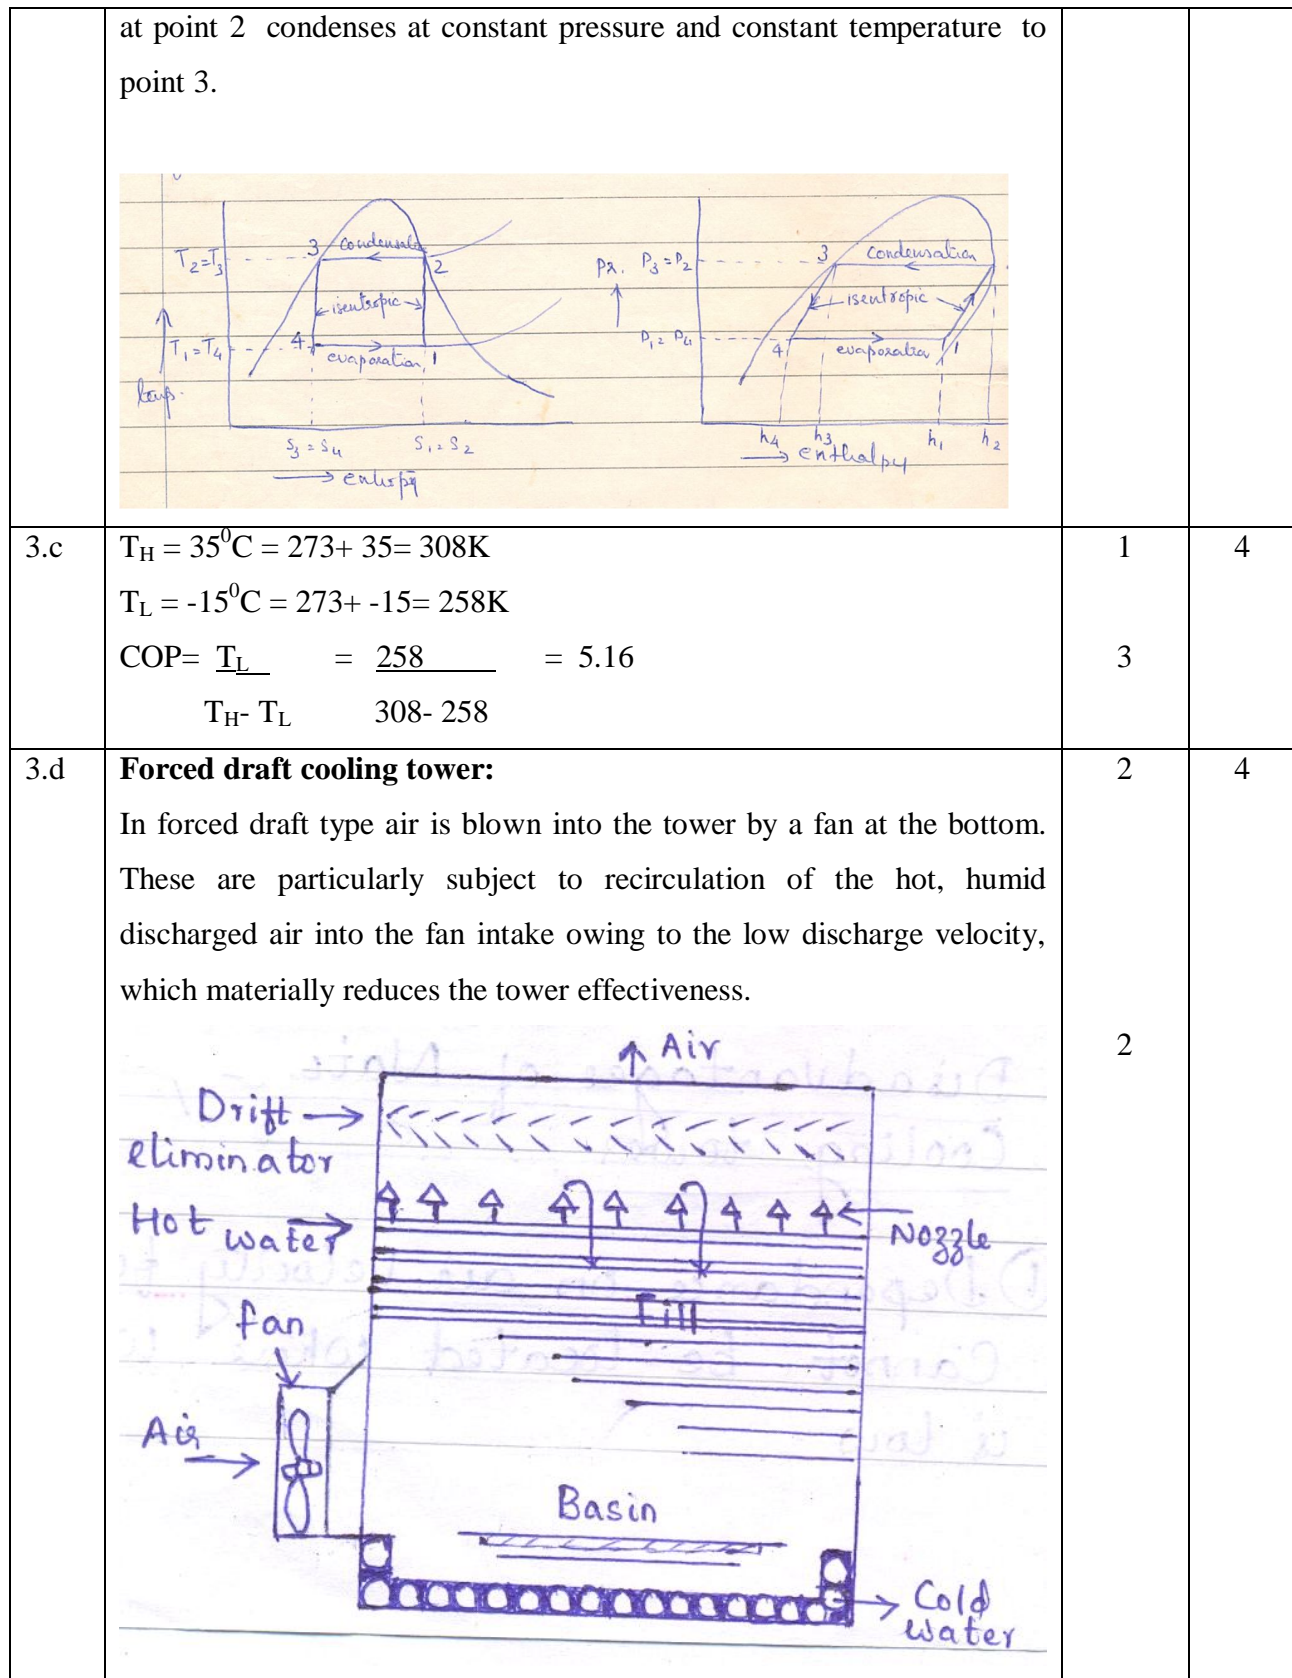 at point 2 condenses at constant pressure and constant temperature to
point 3.
T2=T3
3
condensatio
2
isentropic
T1=T4
4
evaporation
1
temp.
S3=S4
S1=S2
entropy
Pr.
P3=P2
3
condensation
isentropic
P1=P4
4
evaporation
1
h4
h3
h1
h2
enthalpy
3.c
TH = 35⁰C = 273+ 35= 308K
1
4
TL = -15⁰C = 273+ -15= 258K
COP= TL = 258 = 5.16
3
TH- TL 308- 258
3.d
Forced draft cooling tower:
2
4
In forced draft type air is blown into the tower by a fan at the bottom.
These are particularly subject to recirculation of the hot, humid
discharged air into the fan intake owing to the low discharge velocity,
which materially reduces the tower effectiveness.
2
Air
Drift
eliminator
Hot water
Nozzle
Fill
fan
Air
Basin
Cold
water